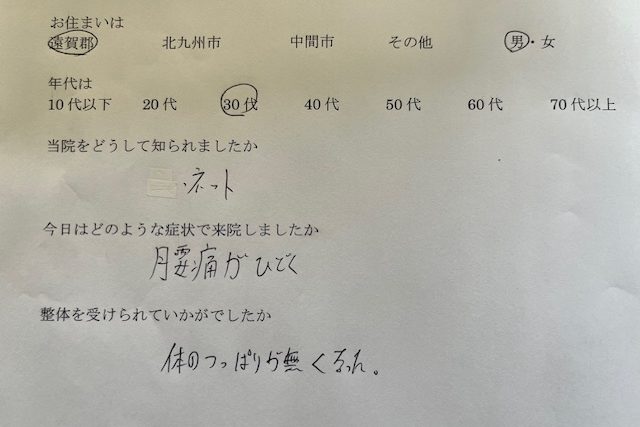 お住まいは
遠賀郡 北九州市 中間市 その他 男・女
年代は
10代以下 20代 30代 40代 50代 60代 70代以上
当院をどうして知られましたか
・ネット
今日はどのような症状で来院しましたか
腰痛がひどく
整体を受けられていかがでしたか
体のつっぱりが無くなった。